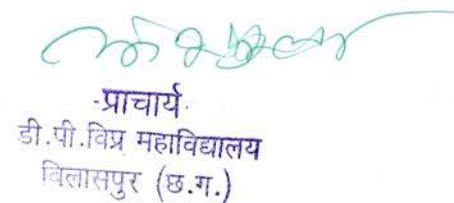 -प्राचार्य-
डी.पी.विप्र महाविद्यालय
बिलासपुर (छ.ग.)